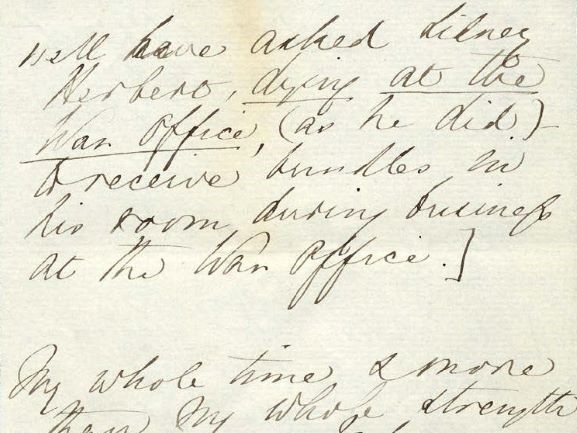 well have asked Sidney
Herbert, dying at the
War Office, (as he did)
to receive bundles in
his room during business
at the War Office.]
My whole time & more
than my whole strength